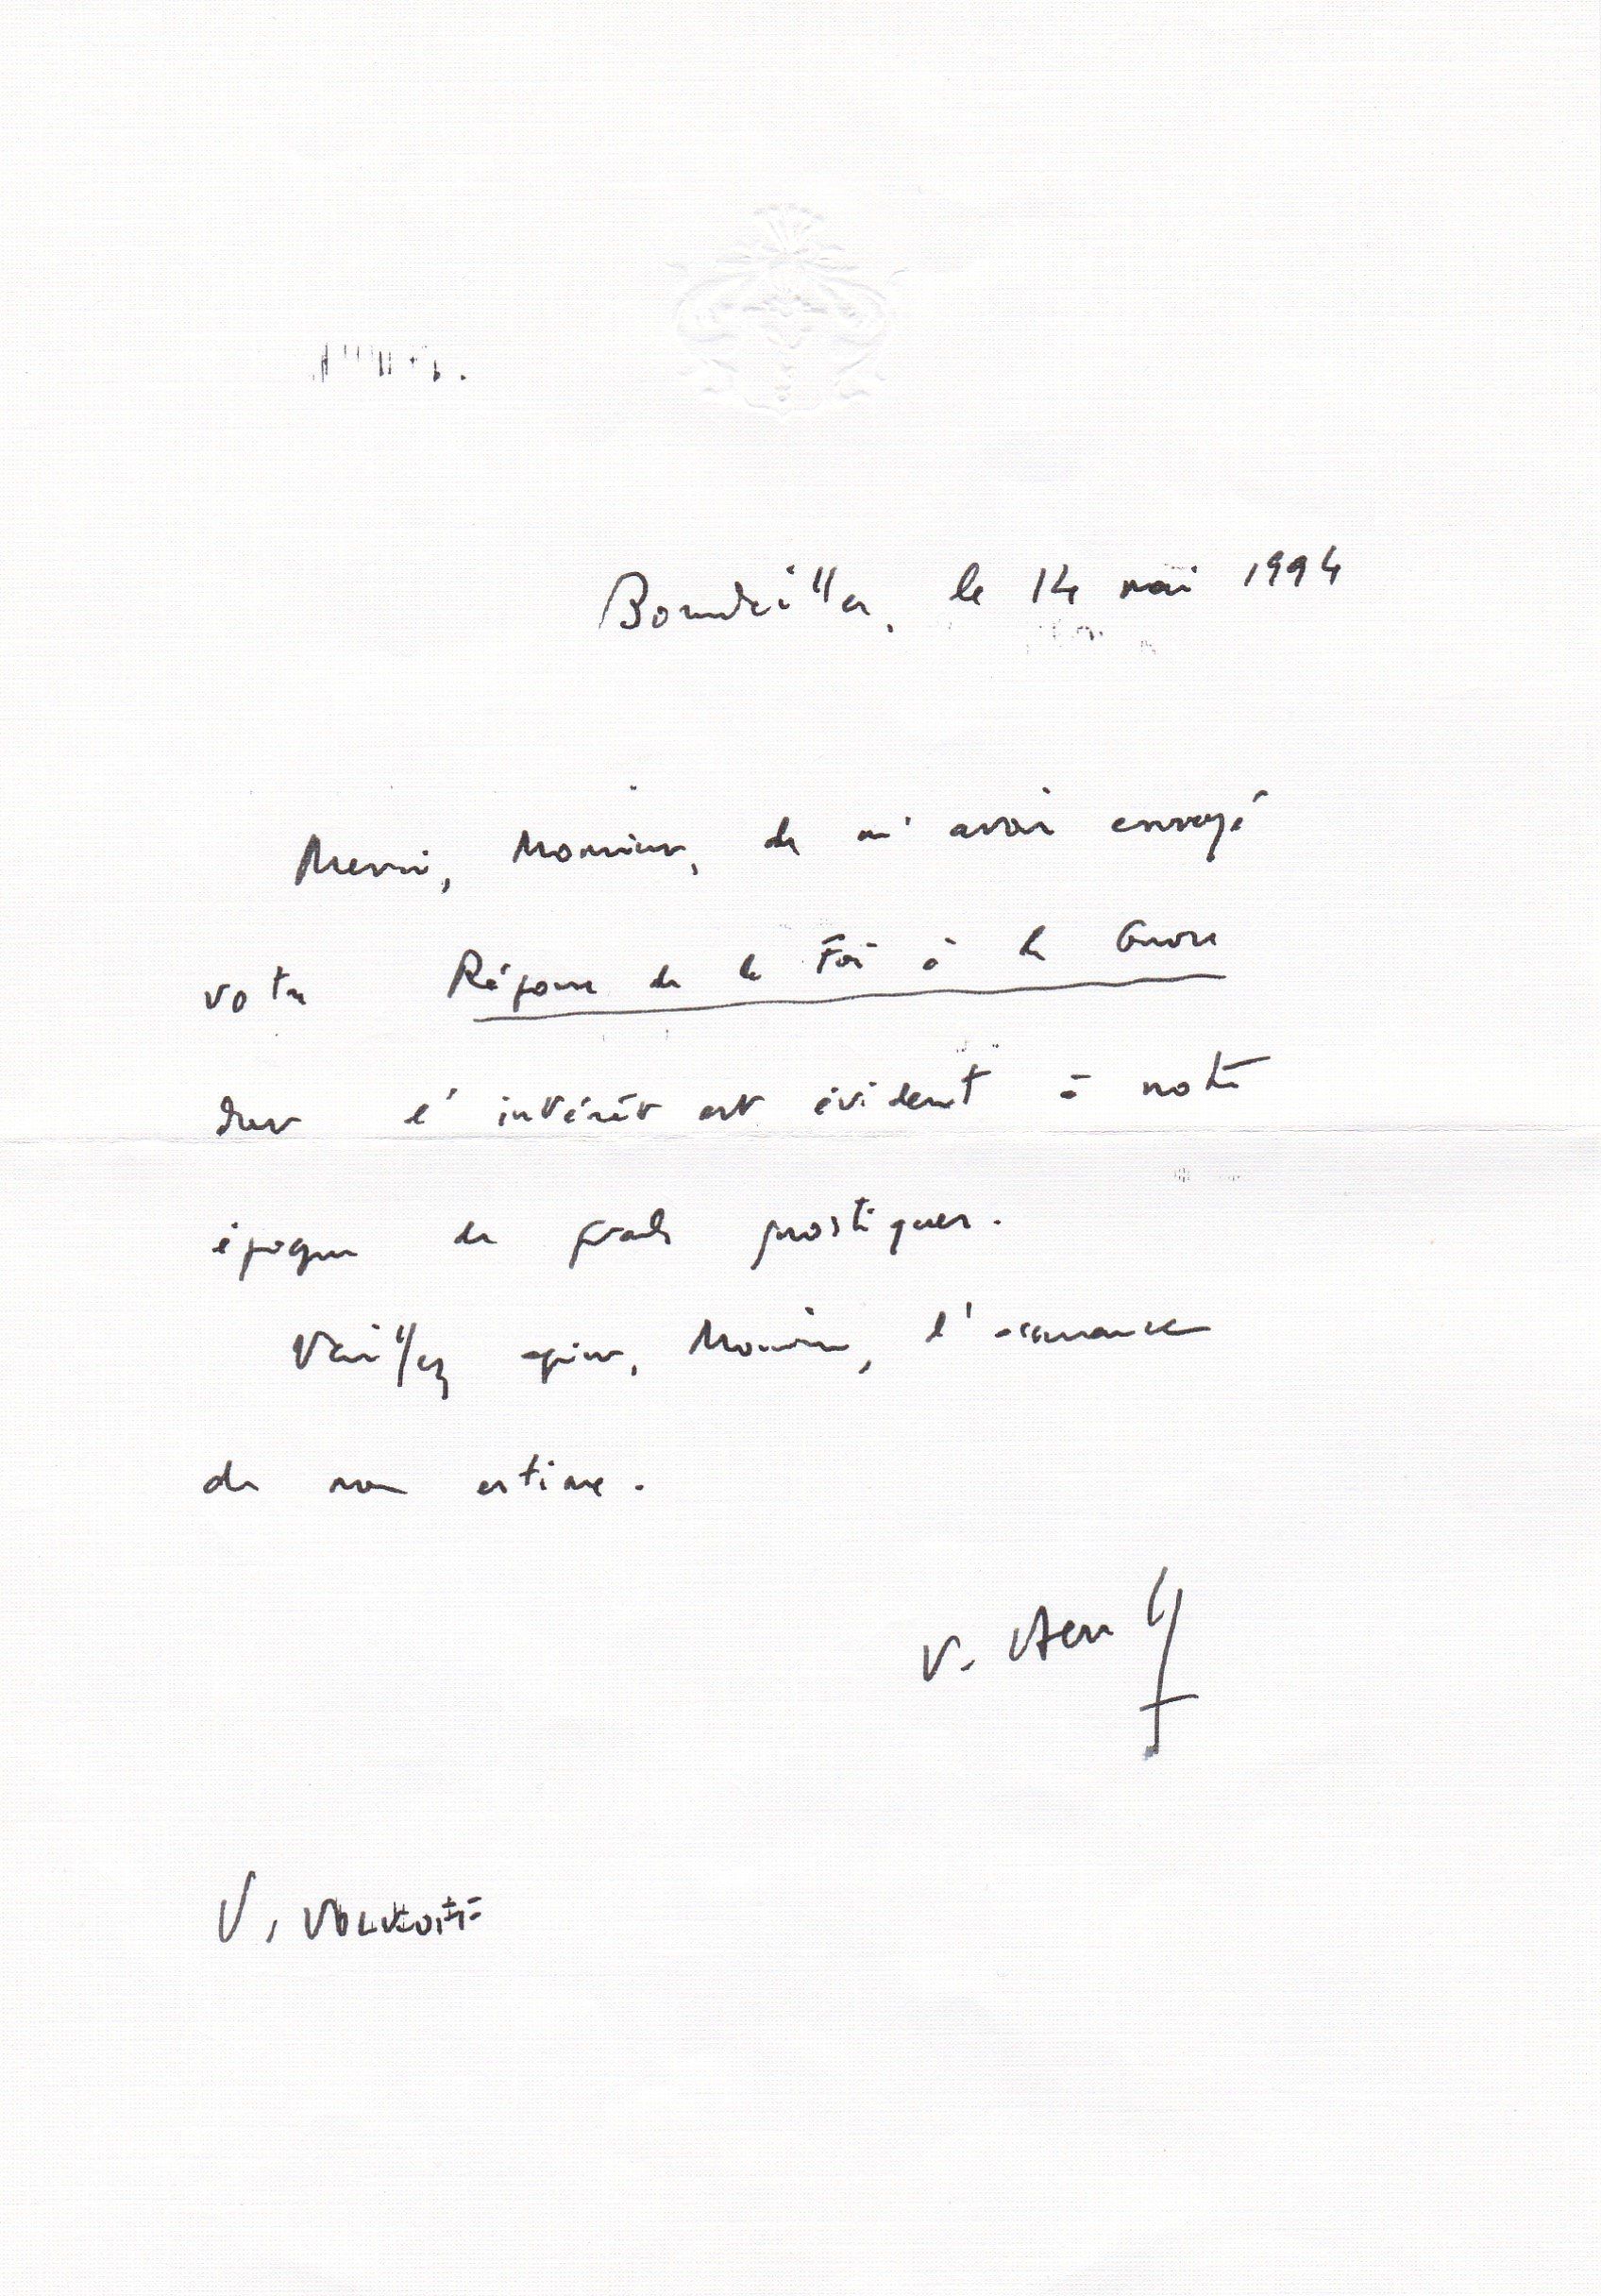 Bourdeilles, le 14 mai 1994
Merci, Monsieur, de m'avoir envoyé
votre Réponse de la Foi à la Gnose
dont l'intérêt est évident à notre
époque de grands gnostiques.
Veuillez agréer, Monsieur, l'assurance
de mon estime.
V. Volkoff
V. VOLKOFF